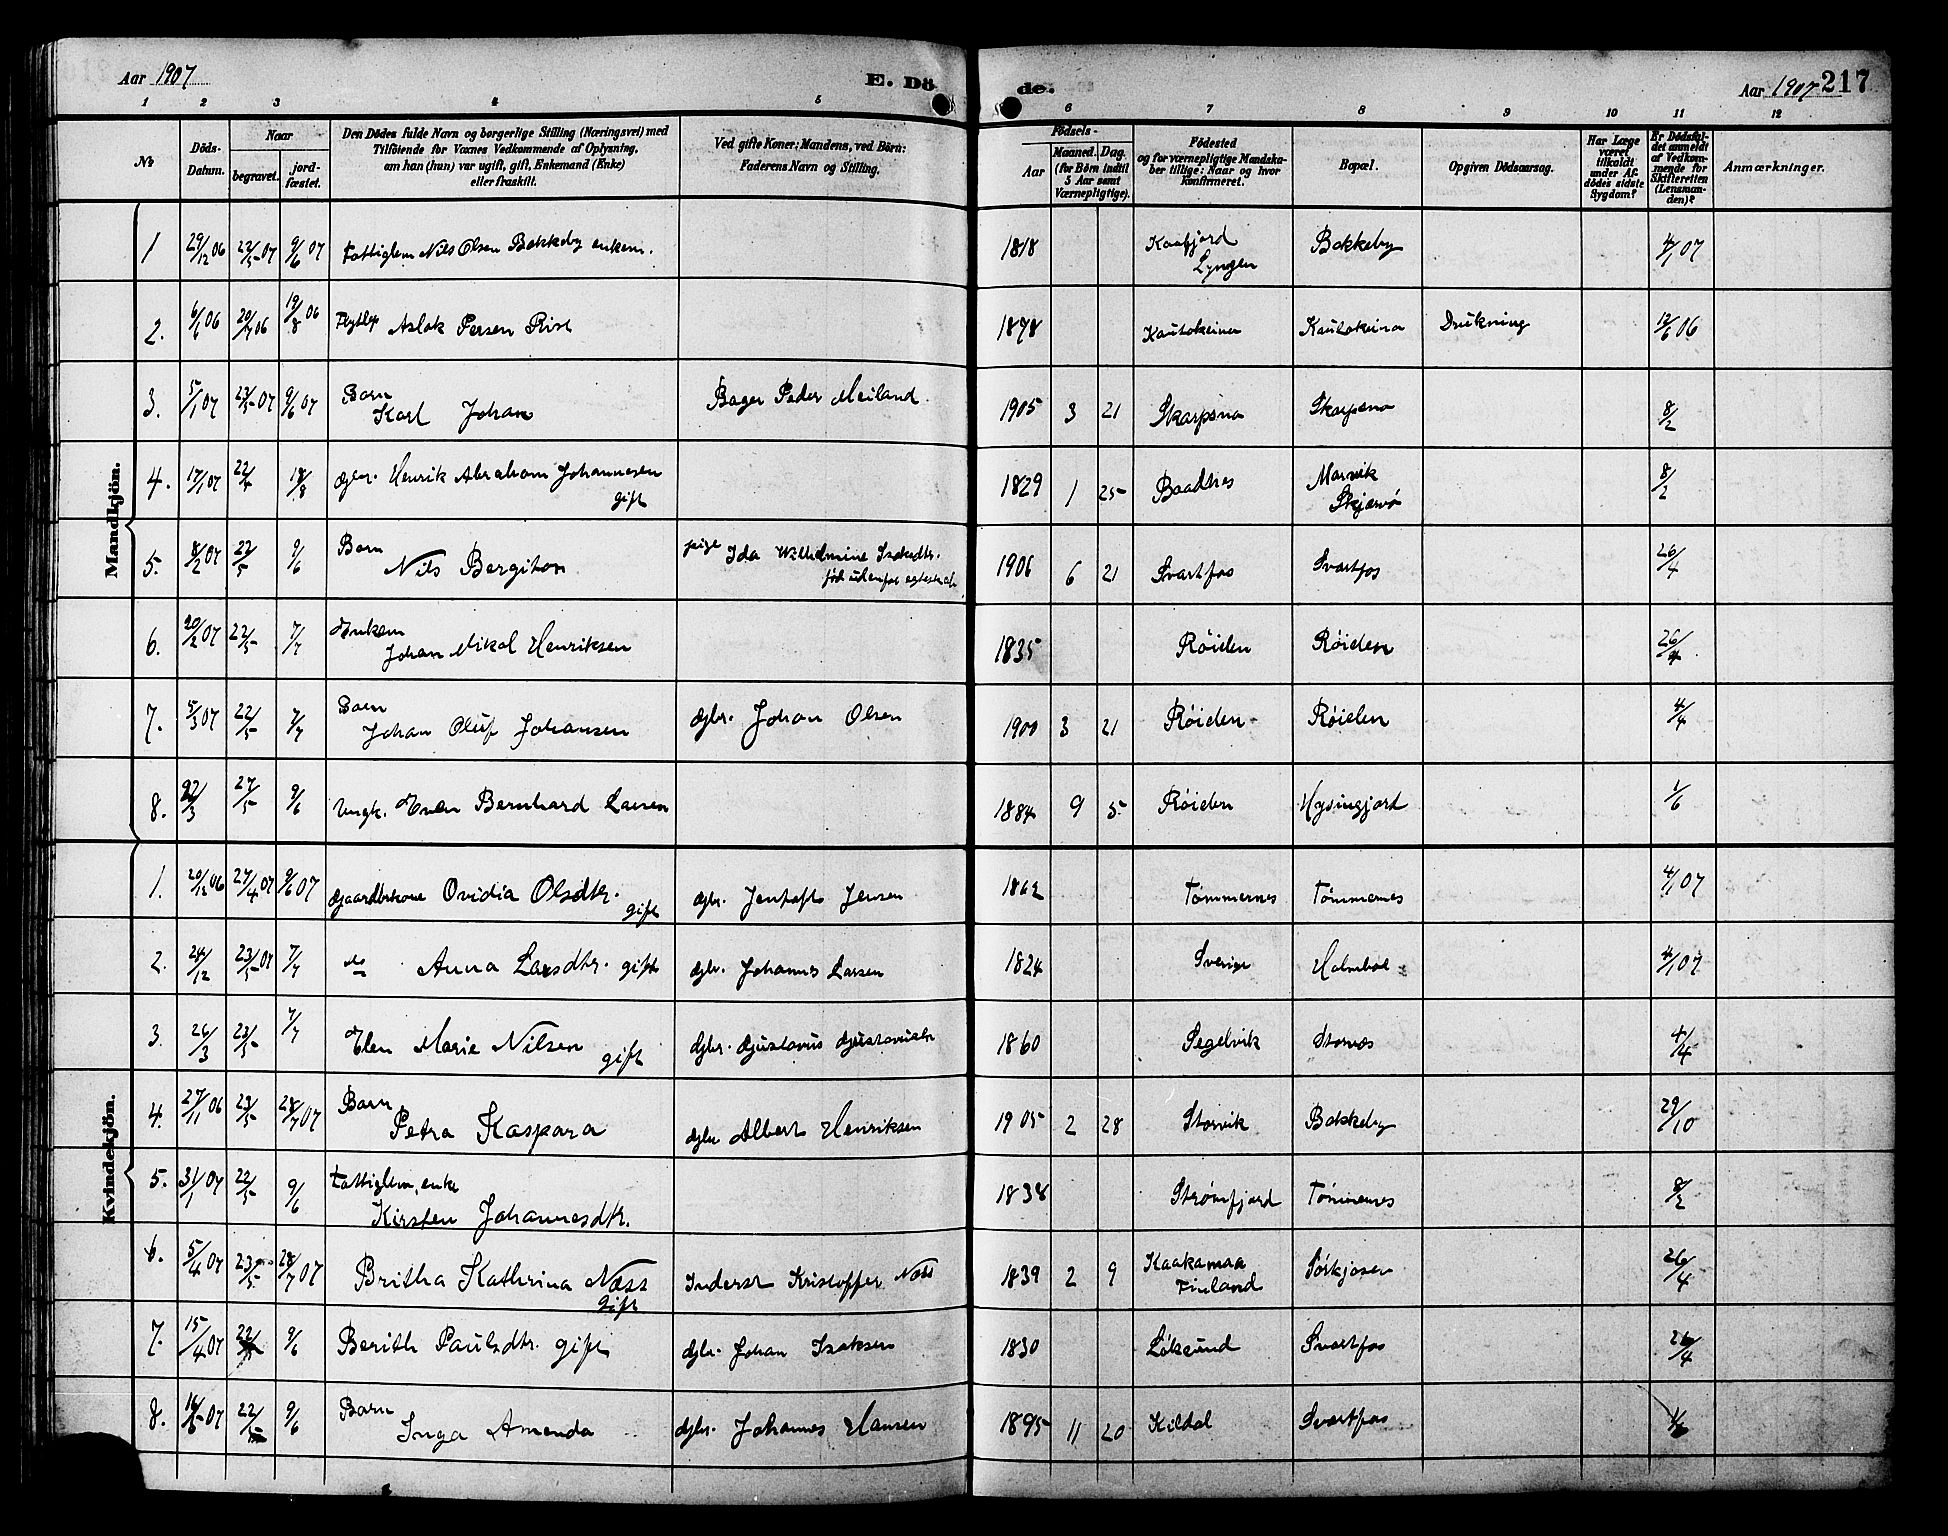 Aar 1907
E. Dö
de.
Aar 1907 217
1 2 3 4 5 6 7 8 9 10 11 12
No
Döds-Datum.
Naar
begravet.
jord-fæstet.
Den Dödes fulde Navn og borgerlige Stilling (Næringsvei) med
Tilföiende for Voxnes Vedkommende af Oplysning,
om han (hun) var ugift, gift, Enkemand (Enke)
eller fraskilt.
Ved gifte Koner: Mandens, ved Börn:
Faderens Navn og Stilling.
Födsels-
Aar
Maaned. Dag.
(for Børn indtil
5 Aar samt
Værnepligtige).
Födested
og for værnepligtige Mandska-
ber tillige: Naar og hvor
konfirmeret.
Bopæl.
Opgiven Dödsaarsag.
Har Læge
været
tilkaldt
under Af-
dödes sidste
Sygdom?
Er Dödsfal-
det anmeldt
af Vedkom-
mende for
Skifteretten
(Lensman-
den)?
Anmærkninger.
Mandkjön.
1 29/12 06 22/5 07 9/6 07 Fattiglem Nils Olsen Bakkeby enkem. 1818 Kaafjord Lyngen Bakkeby 4/1 07
2. 6/1 06 20/7 06 19/8 06 Aslak Persen Rist 1878 Kautokeino Kautokeino Drukning 12/6 06
3. 5/1 07 23/5 07 9/6 07 Barn Karl Johan Peder Meiland 1905 3 21 Skarpsno Skarpsno 8/2
4. 17/1 07 18/8 Gbr. Henrik Abraham Johannesen gift 1829 1 25 Baadsnes Marvik Skjærvø 8/2
5. 8/2 07 22/5 9/6 Barn Nils Bergiton pige Ida Wilhelmine Isaksdtr. født udenfor egteskab 1906 6 21 Svartfos Svartfos 26/4
6. 20/2 07 22/5 7/7 Enkem Johan Mikal Henriksen 1835 Røiden Røiden 26/4
7. 5/3 07 22/5 7/7 Barn Johan Oluf Johansen Gbr. Johan Olsen 1900 3 21 Røiden Røiden 4/4
8. 22/3 27/5 9/6 Ungk. Even Bernhard Larsen 1884 9 5 Røiden 1/6
Kvindekjön.
1. 20/12 06 27/4 07 9/6 07 Gaardbrkone Ovidia Olsdtr. gift Gbr. Jentoft Jensen 1862 Tømmernes Tømmernes 4/1 07
2. 24/12 23/5 07 7/7 do Anna Larsdtr. gift Gbr. Johannes Larsen 1824 Sverige 4/1 07
3. 26/3 23/5 7/7 Elen Marie Nilsen gift Gbr. Gustavus 1860 Segelvik Stornæs 4/4
4. 27/11 06 23/5 28/7 07 Barn Petra Kaspara Gbr Albert Henriksen 1905 2 28 Storvik Bakkeby 29/10
5. 31/1 07 22/5 9/6 Fattiglem, enke Kirsten Johannesdtr. 1838 Strømfjord Tømmernes 8/2
6. 5/4 07 23/5 28/7 07 Britha Kathrina Næss gift Inderst Kristoffer Næss 1839 2 9 Kaakamaa Finland Sørkjosen 26/4
7. 15/4 07 9/6 Berith Paulsdtr. gift Gbr. Johan Isaksen 1830 Løksund Svartfos 26/4
8. 9/6 Barn Inga Amanda Gbr. Johannes Hansen 1895 11 20 Kildal Svartfos